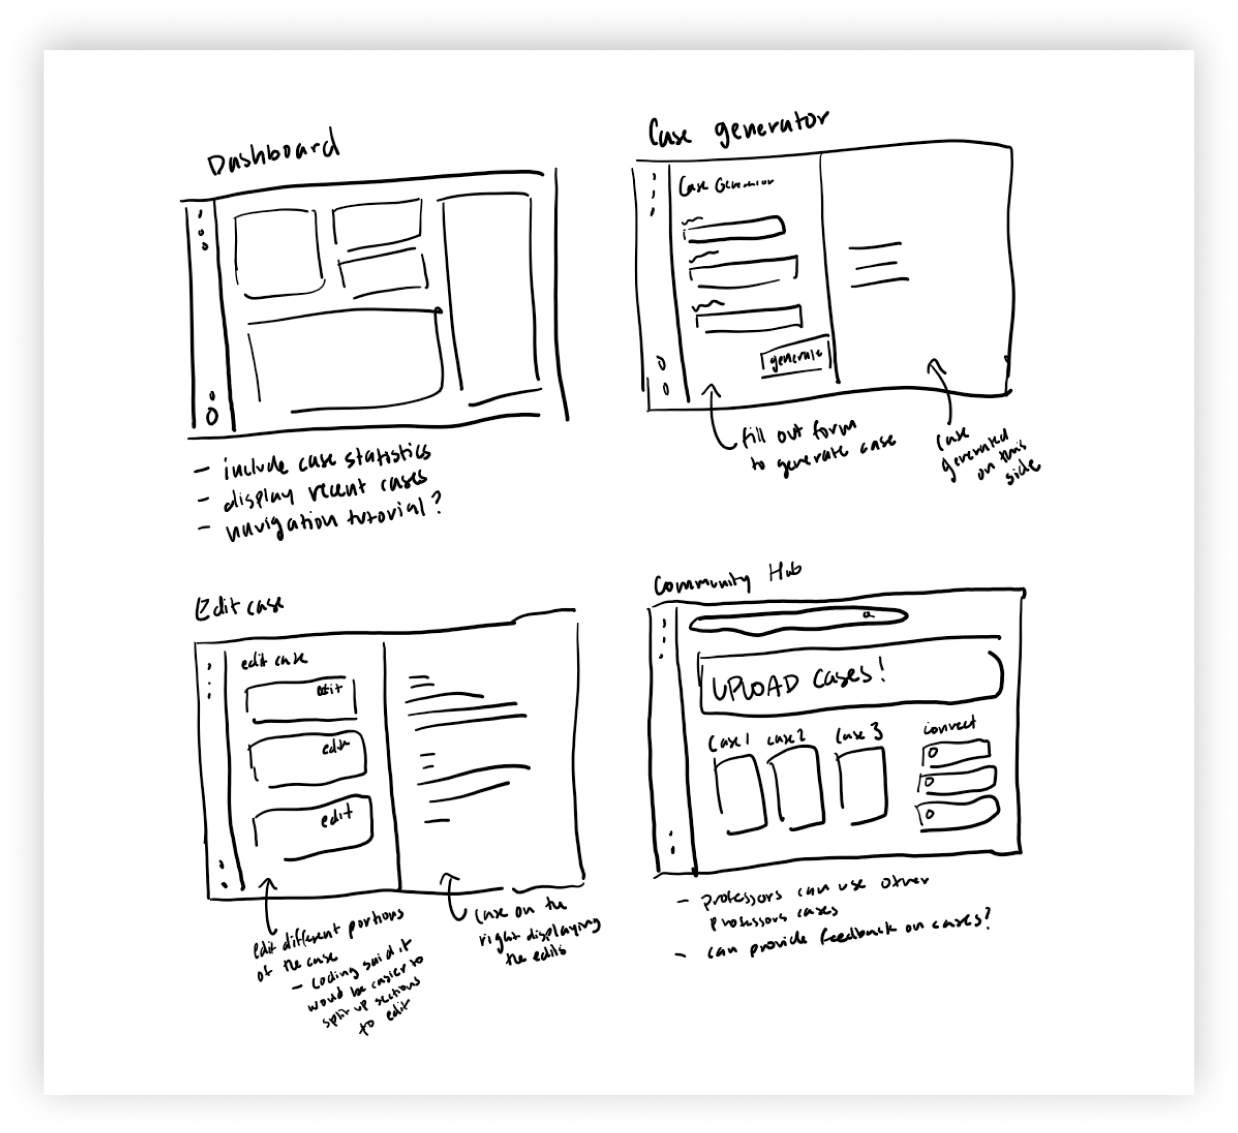 Dashboard
- include case statistics
- display recent cases
- navigation tutorial?
Case generator
Case Generator
generate
fill out form
to generate case
Case
generated
on this
side
Edit case
edit case
edit
edit
edit
edit different portions
of the case
- coding said it
would be easier to
split up sections
to edit
case on the
right displaying
the edits
Community Hub
UPLOAD cases!
Case 1 case 2 Case 3
connect
- professors can use other
professors cases
- can provide feedback on cases?